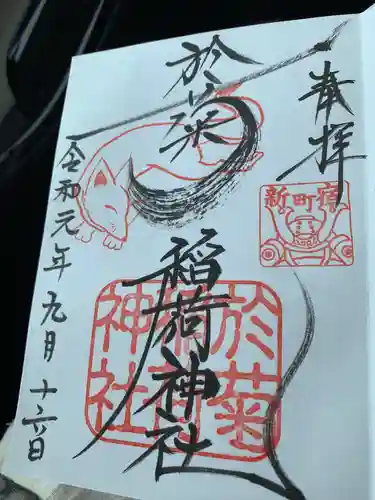 奉拝
新町宿
於菊
稲荷神社
於菊
稲荷
神社
令和元年九月十六日